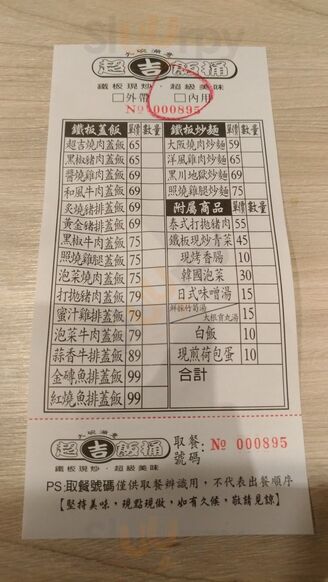 大碗滿意
超吉飯桶
鐵板現炒·超級美味
□外帶 □內用
№ 000895
鐵板蓋飯 單價 數量 鐵板炒麵 單價 數量
超吉燒肉蓋飯 65 大阪燒肉炒麵 59
黑椒豬肉蓋飯 65 洋風雞肉炒麵 65
醬燒雞肉蓋飯 65 黑川地獄炒麵 65
和風牛肉蓋飯 69 照燒雞腿炒麵 75
炙燒豬排蓋飯 69 附屬商品 單價 數量
黃金豬排蓋飯 69 泰式打拋豬肉 55
黑椒牛肉蓋飯 75 鐵板現炒青菜 45
照燒雞腿蓋飯 75 現烤香腸 10
泡菜燒肉蓋飯 75 韓國泡菜 30
打拋豬肉蓋飯 79 日式味噌湯 15
蜜汁雞排蓋飯 79 鮮採竹筍湯 大根貢丸湯 15
泡菜牛肉蓋飯 79 白飯 10
蒜香牛排蓋飯 89 現煎荷包蛋 10
金磚魚排蓋飯 99 合計
紅燒魚排蓋飯 99
大碗滿意
超吉飯桶
鐵板現炒·超級美味
取餐號碼: № 000895
PS:取餐號碼僅供取餐辨識用，不代表出餐順序
【堅持美味，現點現做，如有久候，敬請見諒】